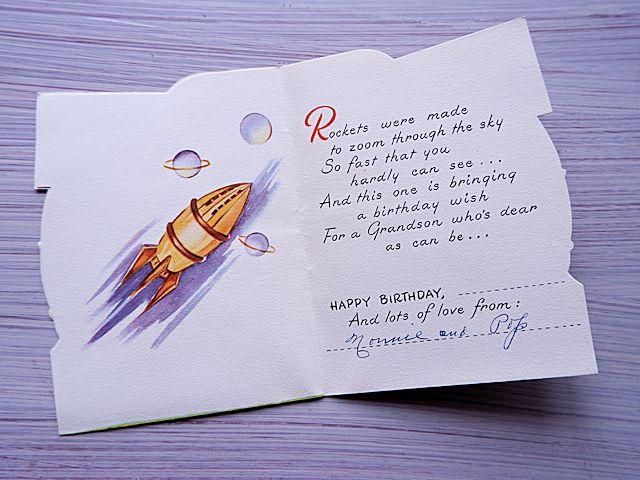 Rockets were made
to zoom through the sky
So fast that you
hardly can see...
And this one is bringing
a birthday wish
For a Grandson who's dear
as can be...
HAPPY BIRTHDAY,
And lots of love from:
Nonnie and Pop